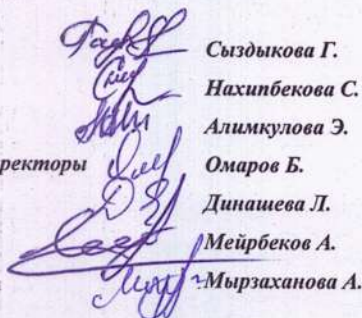 Сыздыкова Г.
Нахипбекова С.
Алимкулова Э.
ректоры Омаров Б.
Динашева Л.
Мейрбеков А.
Мырзаханова А.